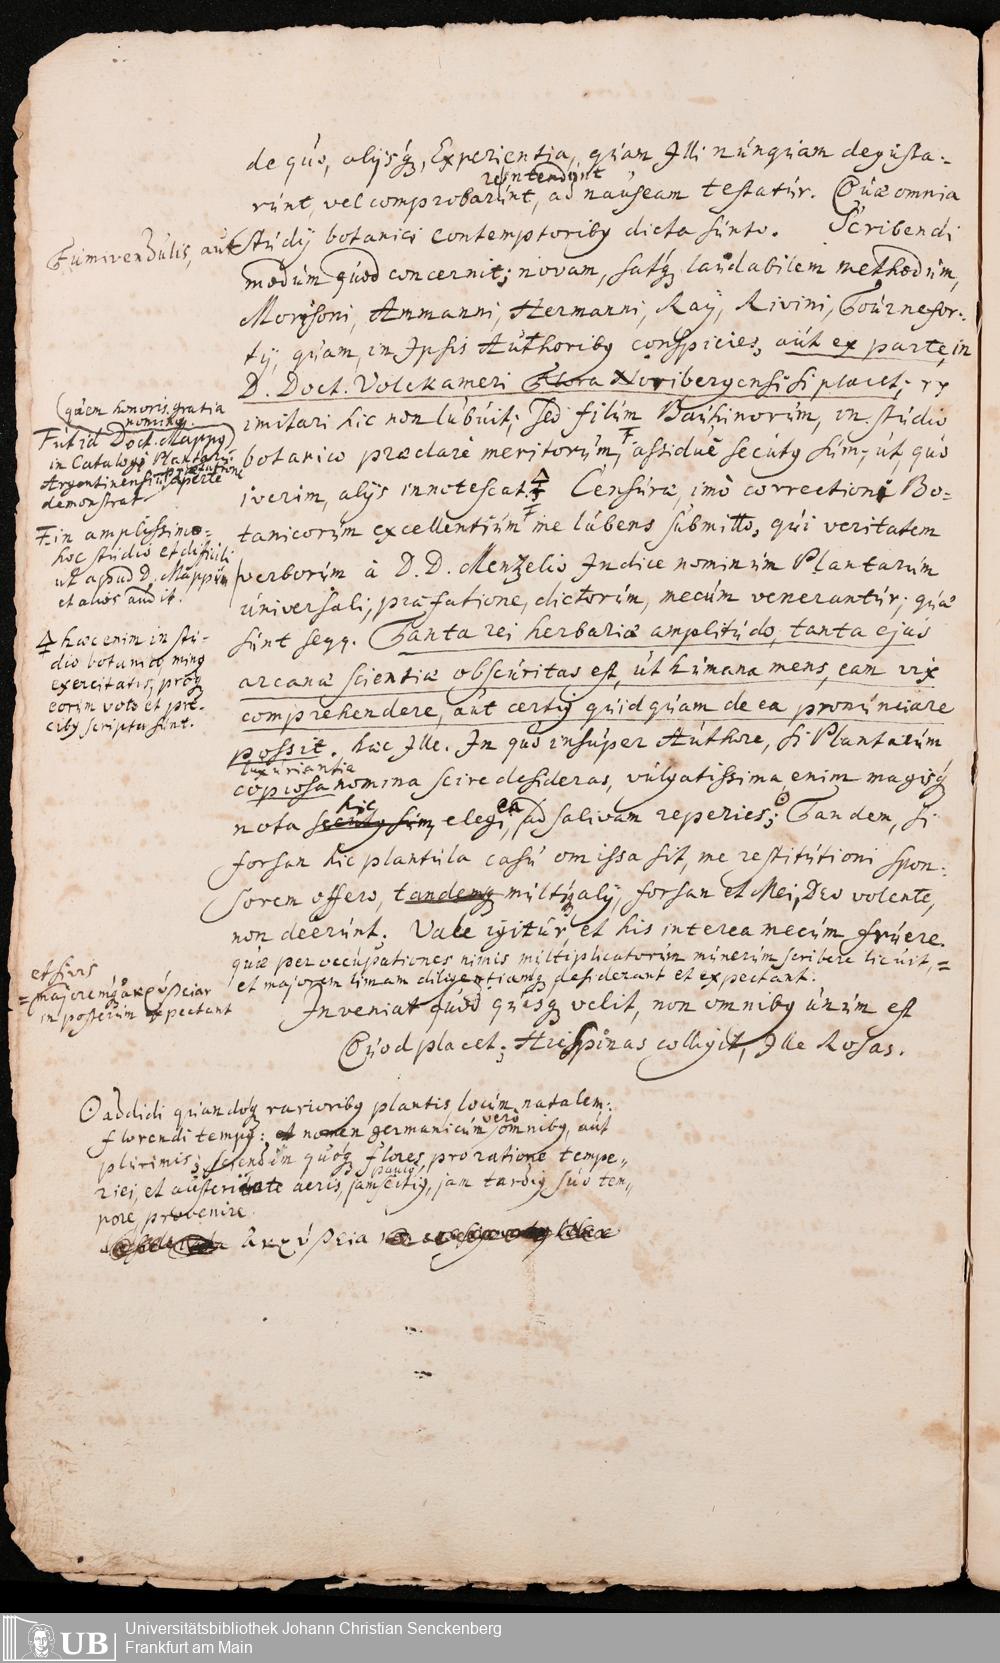 de quo, alijsq, Experientia, quam Illi nunquam degusta-
runt, vel comprobarunt, ad nauseam testatur. Quæ omnia
Fumivendulis, aut
Studij botanici contemptoribq dicta sunto. Scribendi
modum quod concernit; novam, satq laudabilem methodum,
Morisoni, Ammanni, Hermanni, Raij, Rivini, Tournefor-
tij, quam, in Ipsis Authoribq conspicies, aut ex parte, in
D. Doct. Volckameri Flora Noribergensi si placet;
imitari hic non lubuit; Sed filum Bauhinorum, in studio
botanico præclarè meritorum, assiduè secutq sum, ut quo
iverim, alijs innotescat. Censuræ, imò correctioni Bo-
tanicorum excellentium me lubens submitto, qui veritatem
verborum à D. D. Menzelio Indice nominum Plantarum
universali, præfatione, dictorum, mecum venerantur; quæ
sunt seqq. Tanta rei herbariæ amplitudo, tanta ejus
arcanæ scientiæ obscuritas est, ut humana mens, eam vix
comprehendere, aut certiq quidquam de ea pronunciare
possit. hæc Ille. In quo insuper Authore, si Plantarum
luxuriantia
copiosa nomina scire desideras, vulgatissima enim magisq
nota hic elegi, ea ad salivam reperies; Tandem, si
forsan hic plantula casu omissa sit, me restitutioni spon-
sorem offero, multiq alij forsan et Mei, Deo volente,
non deerunt. Vale igitur, et his interea mecum fruere.
quæ per occupationes nimis multiplicatorum munerum scribere licuit, =
et majorem limam diligentiamq desiderant et expectant.
Inveniat quod quisq velit, non omnibq unum est
Quod placet; Hic spinas colligit, Ille Rosas.
(quem honoris gratia
nominq.
Ŧ ut id Doct. Mappq)
in Catalogi Plantarum
Argentinensium præfatione
aperte
demonstrat
Ŧ in amplissimo
hoc studio et difficili
ut apud D. Mappum
et alios audit.
hæc enim in stu-
dio botanico minq
exercitatis, proq
eorum voto et pre-
cibq scripta sunt.
et suos
= majoremq ἀκρίβειαν
in posterum expectant
addidi quandoq rarioribq plantis locum natalem;
florendi tempq: nomen germanicum vero omnibq, aut
plurimis; sciendum quoq flores, pro ratione tempe-
riei, et austeritate aeris, jam citiq, jam tardiq suo tem-
pore provenire.
Universitätsbibliothek Johann Christian Senckenberg
Frankfurt am Main
UB